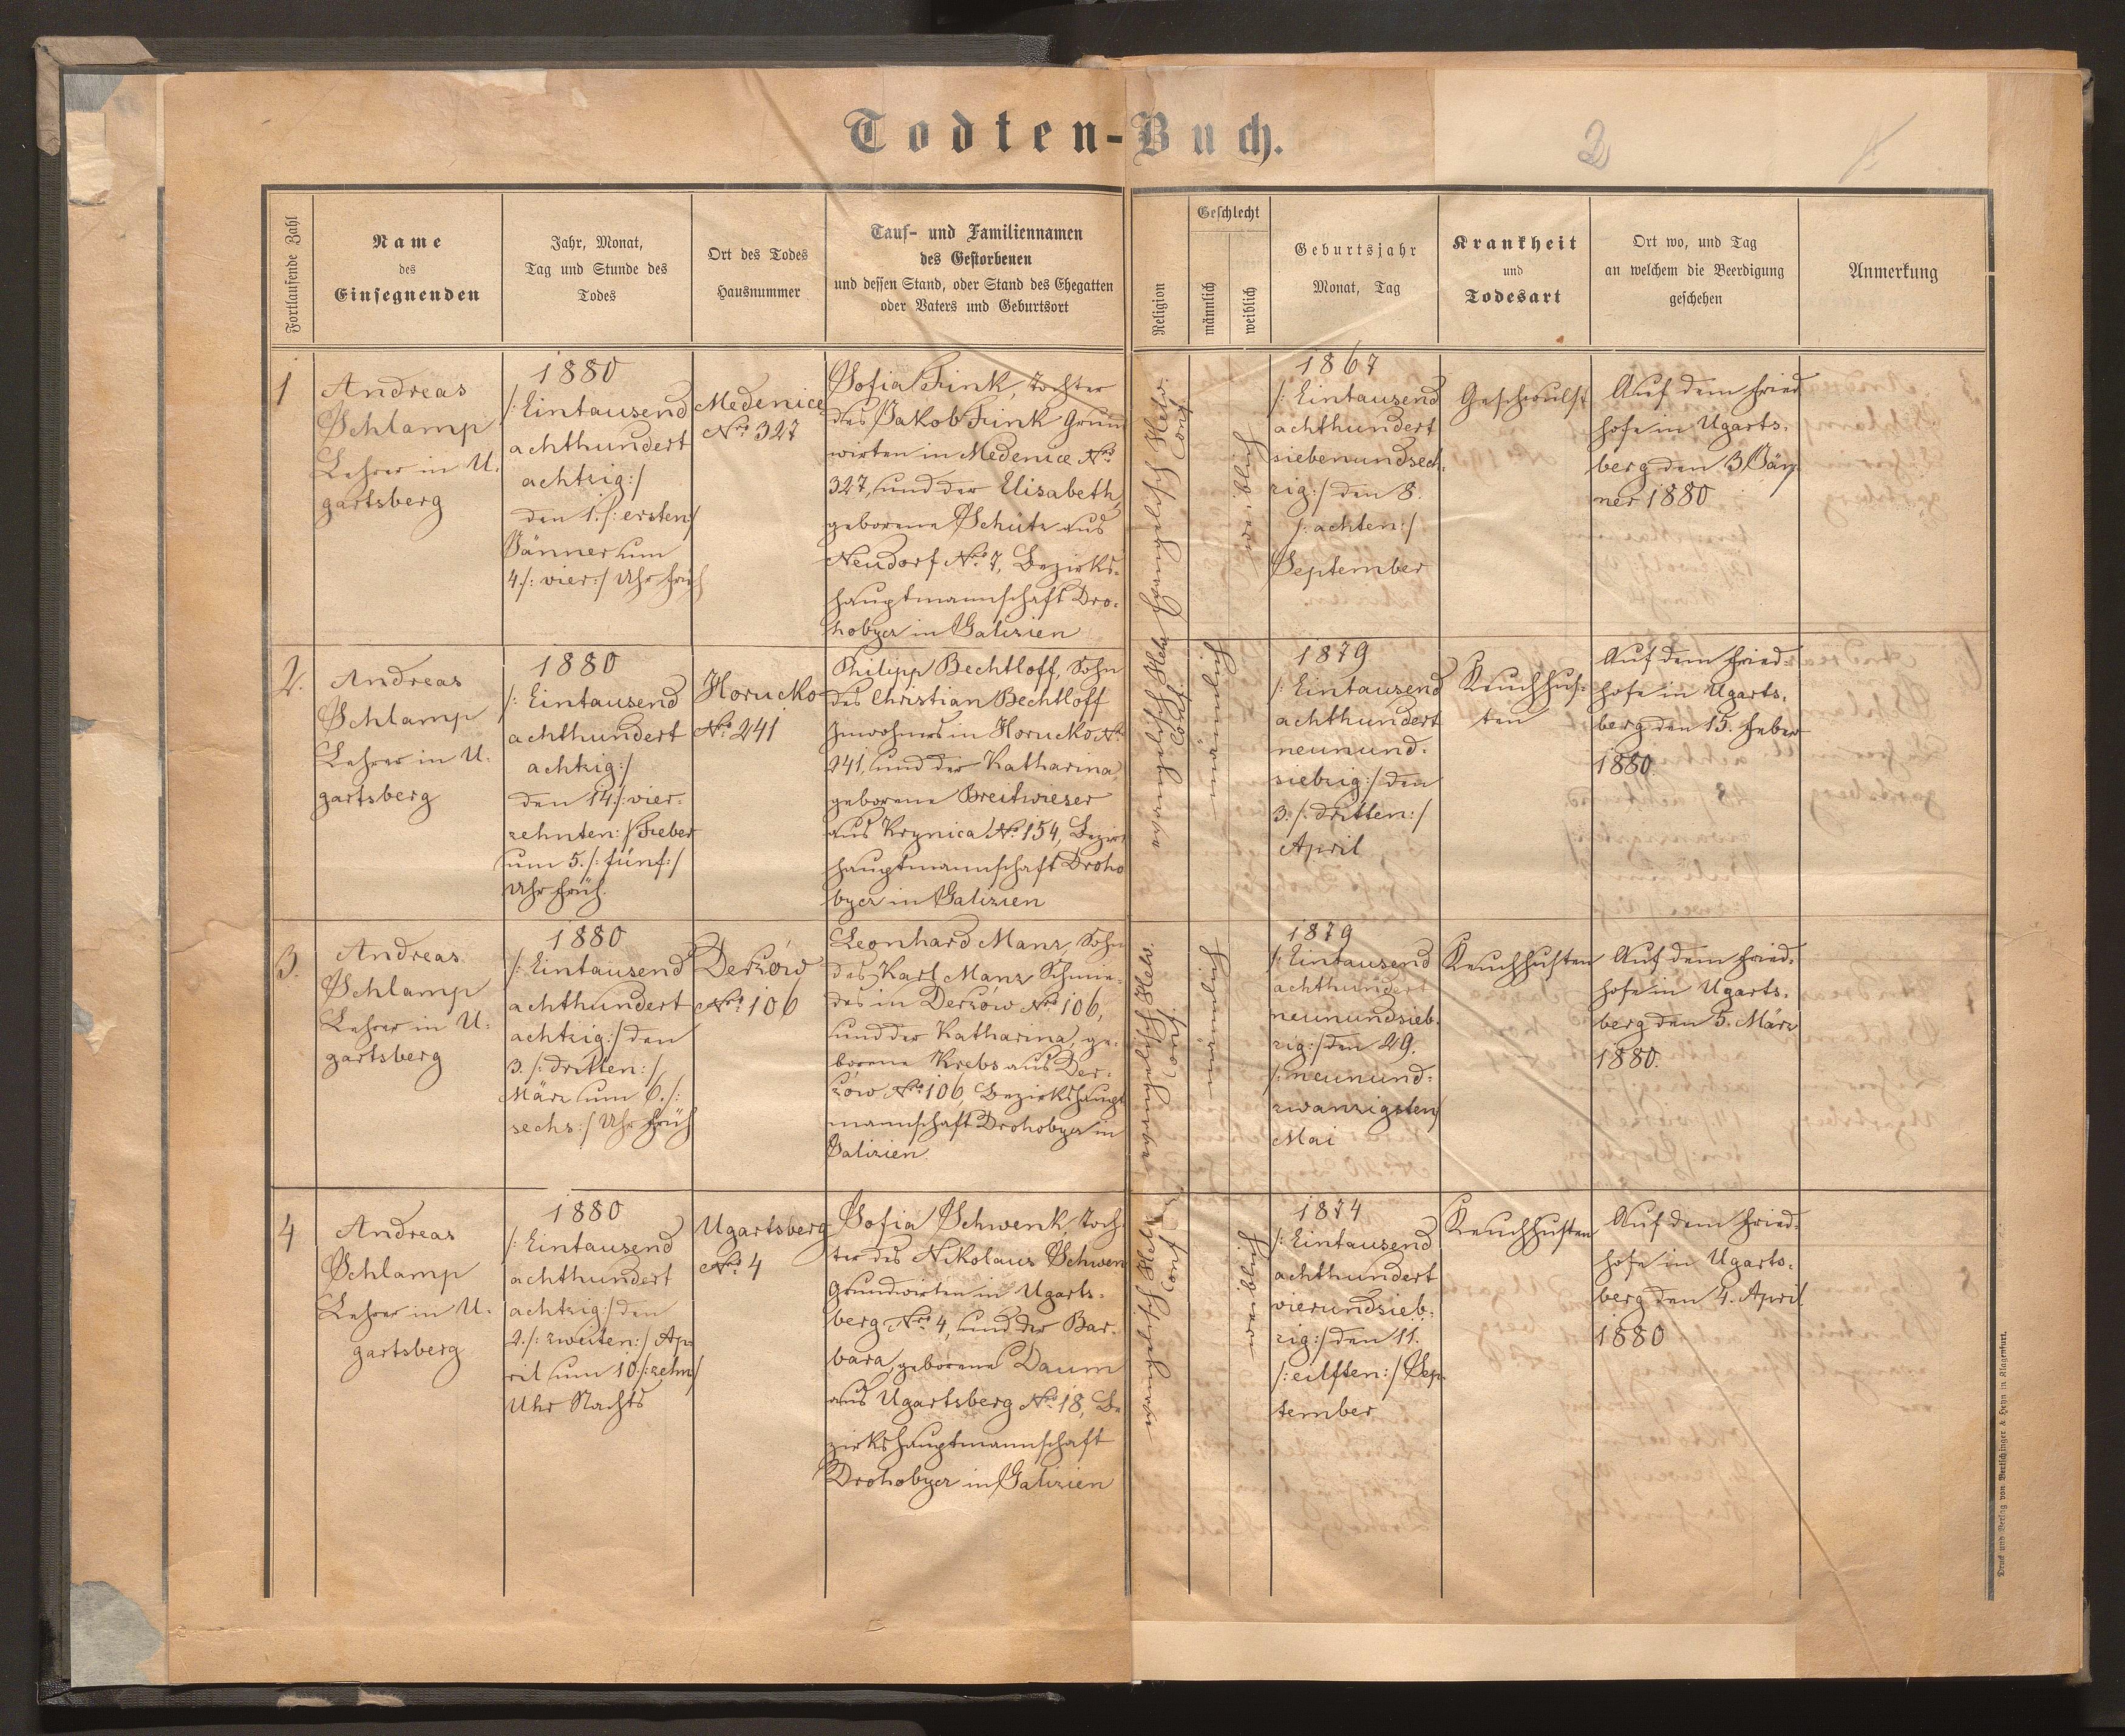 Todten-Buch.
2
Fortlaufende Zahl
Name
des
Einsegnenden
Jahr, Monat,
Tag und Stunde des
Todes
Ort des Todes
Hausnummer
Tauf- und Familiennamen
des Gestorbenen
und dessen Stand, oder Stand des Ehegatten
oder Vaters und Geburtsort
Religion
Geschlecht
männlich
weiblich
Geburtsjahr
Monat, Tag
Krankheit
und
Todesart
Ort wo, und Tag
an welchem die Beerdigung
geschehen
Anmerkung
1
Andreas
Schlamp
Lehrer in U.
gartsberg
1880
/: Eintausend
achthundert
achtzig:/
den 1. /: ersten:/
Jänner um
4 /: vier:/ Uhr früh
Medenice
Nro 327
Sofia Fink, Tochter
des Jakob Fink Grund
wirten in Medenice Nro
327, und der Elisabeth,
geborene Schütz aus
Neudorf Nro 7, Bezirks-
hauptmannschaft Dro-
hobycz in Galizien
Evangelisch Helv.
Conf.
weiblich
1867
/: Eintausend
achthundert
siebenundsech-
zig:/ den 8.
/: achten:/
September
Geschwulst
Auf dem Fried
hofe in Ugarts-
berg den 3 Jän-
ner 1880
2.
Andreas
Schlamp
Lehrer in U.
gartsberg
1880
/: Eintausend
achthundert
achtzig:/
den 14 /: vier-
zehnten:/ Feber
um 5. /: fünf:/
Uhr früh.
Horucko
Nro 241
Philipp Bechtloff, Sohn
des Christian Bechtloff
Inwohners in Horucko Nro
241, und der Katharina,
geborene Breitwieser
aus Krynica Nro 154, Bezirks
hauptmannschaft Droho
bycz in Galizien
evangelisch Helv.
Conf.
männlich
1879
/: Eintausend
achthundert
neunund-
siebzig:/ den
3. /: dritten:/
April
Keuchhus-
ten
Auf dem Fried-
hofe in Ugarts-
berg den 15. Feber
1880.
3.
Andreas
Schlamp
Lehrer in U.
gartsberg
1880
/: Eintausend
achthundert
achtzig:/ den
3. /: dritten:/
März um 6. /:
sechs:/ Uhr früh
Derżów
Nro 106
Leonhard Manz, Sohn
des Karl Manz Schmie-
des in Derżów Nro 106,
und der Katharina, ge-
borene Krebs aus Der-
żów Nro 106, Bezirkshaupt
mannschaft Drohobycz in
Galizien.
evangelisch Helv.
Conf.
männlich
1879
/: Eintausend
achthundert
neunundsieb-
zig:/ den 29.
/: neunund-
zwanzigsten/
Mai
Keuchhusten
Auf dem Fried-
hofe in Ugarts-
berg den 5. März
1880.
4
Andreas
Schlamp
Lehrer in U.
gartsberg
1880
/: Eintausend
achthundert
achtzig:/ den
2. /: zweiten:/ Ap-
ril um 10 /: zehn/
Uhr Nachts
Ugartsberg
Nro 4
Sofia Schwenk, Toch-
ter des Nikolaus Schwen
Grundwirten in Ugarts-
berg Nro 4, und der Bar-
bara, geborene Daum
aus Ugartsberg Nro 18, Be
zirkshauptmannschaft
Drohobycz in Galizien
evangelisch Helv.
Conf.
weiblich
1874
/: Eintausend
achthundert
vierundsieb-
zig:/ den 11.
/: eilften:/ Sep-
tember
Keuchhusten
Auf dem Fried-
hofe in Ugarts-
berg den 4. April
1880
Druck und Verlag von Bertschinger & Heyn in Klagenfurt.